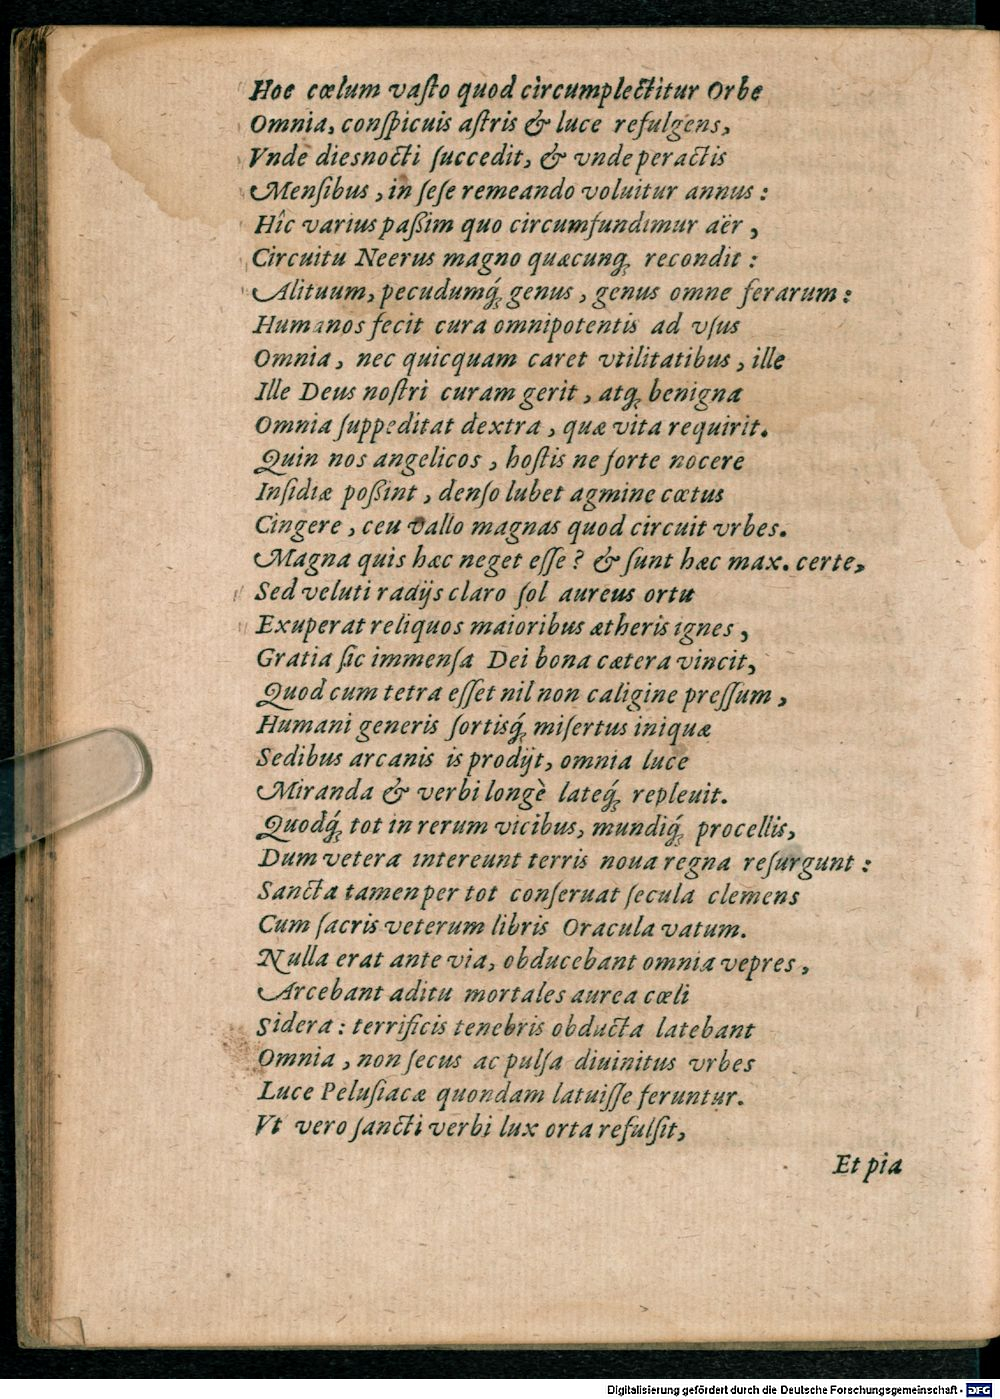 Hoe cœlum vaſto quod circumplectitur Orbe
Omnia, conſpicuis aſtris & luce refulgens,
Vnde diesnocti ſuccedit, & vnde peractis
Menſibus, in ſeſe remeando voluitur annus:
Hîc varius paßim quo circumfundimur aër,
Circuitu Neerus magno quæcunq́ recondit:
Alituum, pecudumq́ genus, genus omne ferarum:
Humanos fecit cura omnipotentis ad vſus
Omnia, nec quicquam caret vtilitatibus, ille
Ille Deus noſtri curam gerit, atq; benigna
Omnia ſuppeditat dextra, quæ vita requirit.
Quin nos angelicos, hoſtis ne forte nocere
Inſidiæ poßint, denſo lubet agmine cœtus
Cingere, ceu vallo magnas quod circuit vrbes.
Magna quis hæc neget eſſe? & ſunt hæc max. certe,
Sed veluti radijs claro ſol aureus ortu
Exuperat reliquos maioribus ætheris ignes,
Gratia ſic immenſa Dei bona cætera vincit,
Quod cum tetra eſſet nil non caligine preſſum,
Humani generis ſortisq́; miſertus iniquæ
Sedibus arcanis is prodijt, omnia luce
Miranda & verbi longè lateq́; repleuit.
Quodq́; tot in rerum vicibus, mundiq́; procellis,
Dum vetera intereunt terris noua regna reſurgunt:
Sancta tamen per tot conſeruat ſecula clemens
Cum ſacris veterum libris Oracula vatum.
Nulla erat ante via, obducebant omnia vepres,
Arcebant aditu mortales aurea cœli
Sidera: terrificis tenebris obducta latebant
Omnia, non ſecus ac pulſa diuinitus vrbes
Luce Peluſiacæ quondam latuiſſe feruntur.
Vt vero ſancti verbi lux orta refulſit,
Et pia
Digitalisierung gefördert durch die Deutsche Forschungsgemeinschaft - DFG